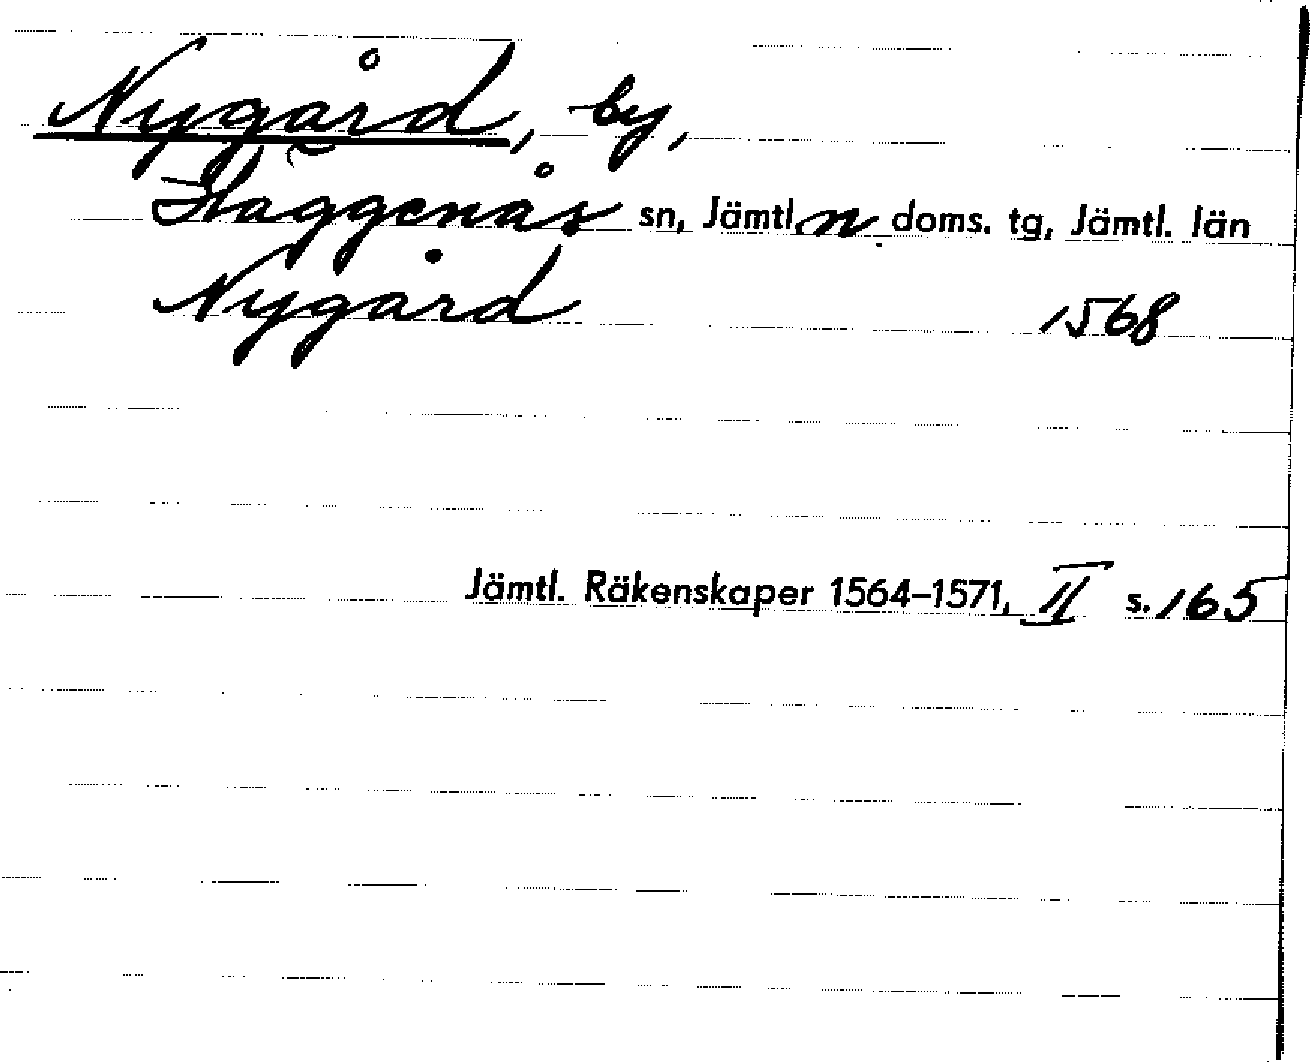 Nygård, by,
Häggenås sn, Jämtl. n. doms. tg, Jämtl. län
Nygård 1568
Jämtl. Räkenskaper 1564–1571, II s. 165